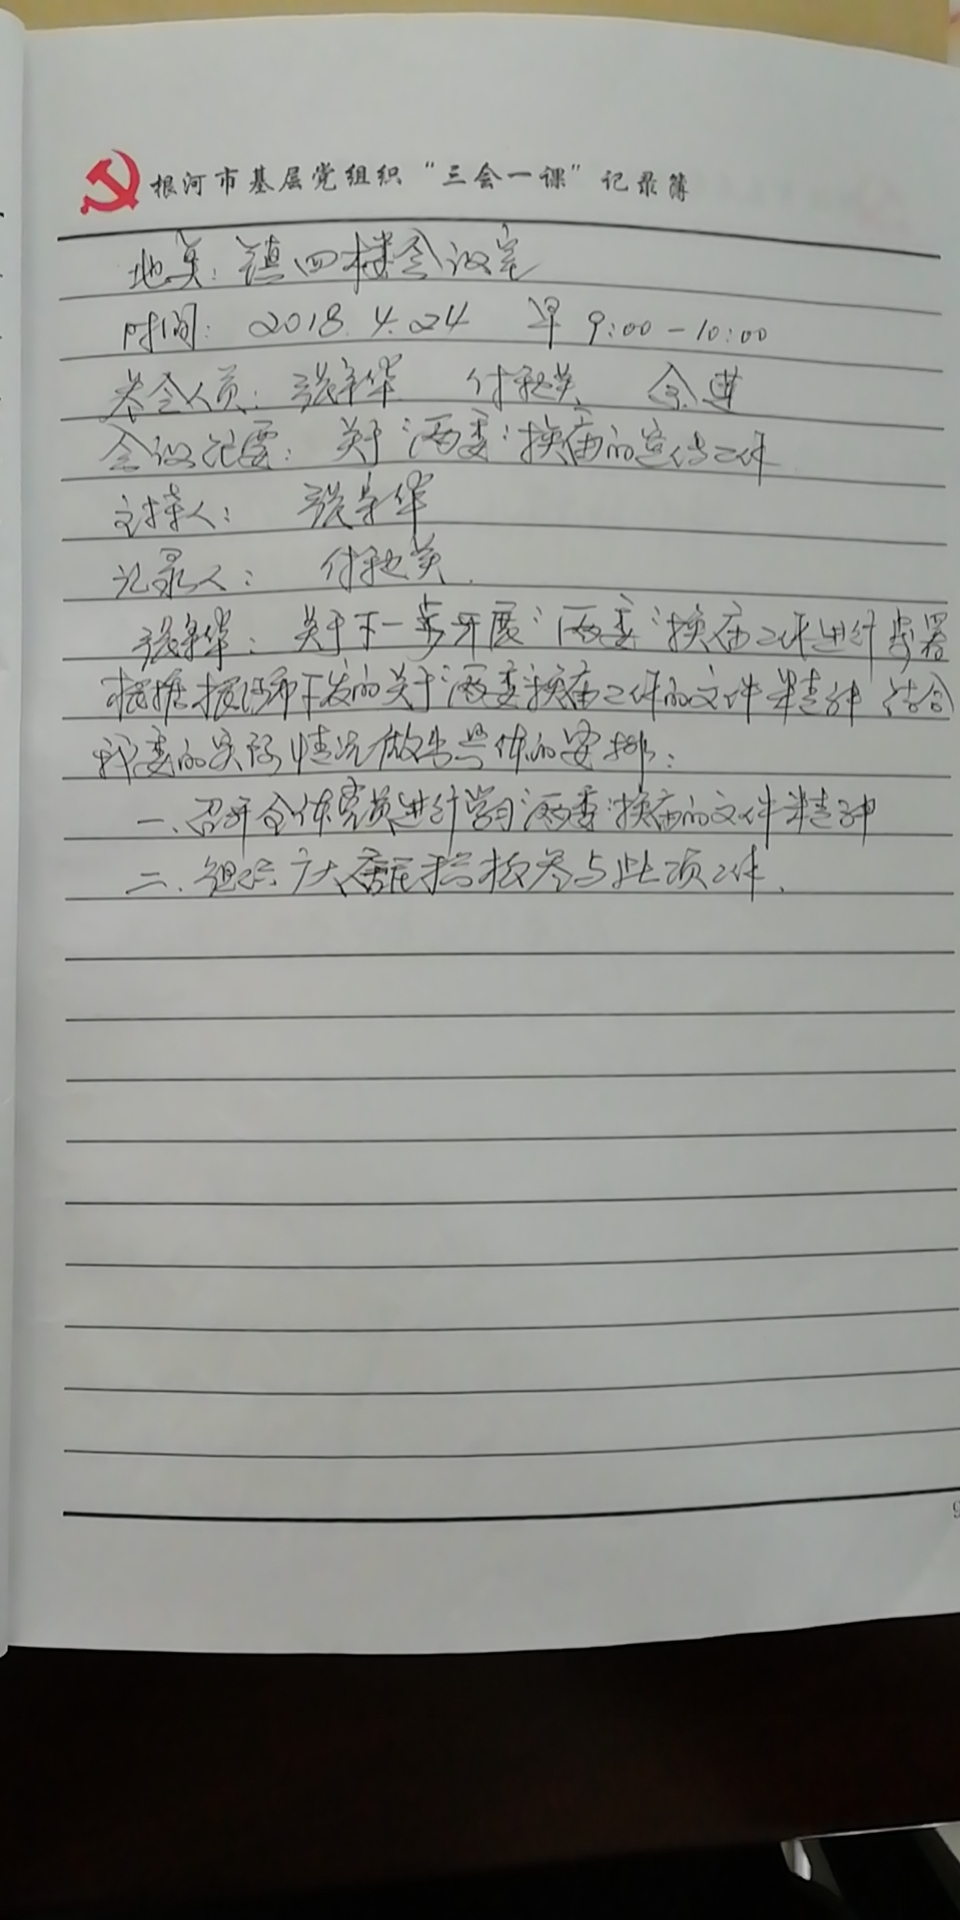 根河市基层党组织“三会一课”记录簿
地点：镇四楼会议室
时间：2018.4.24 早9:00-10:00
参会人员：张 华 付艳英
会议纪要：关于“两委”换届的宣传工作
主持人：张 华
记录人：付艳英
张 华：关于下一步开展“两委”换届工作进行部署
根据根河市下发的关于“两委”换届工作的文件精神 结合
我委的实际情况做出具体的安排：
一、召开全体党员进行学习“两委”换届的文件精神
二、组织广大居民积极参与此项工作.
9